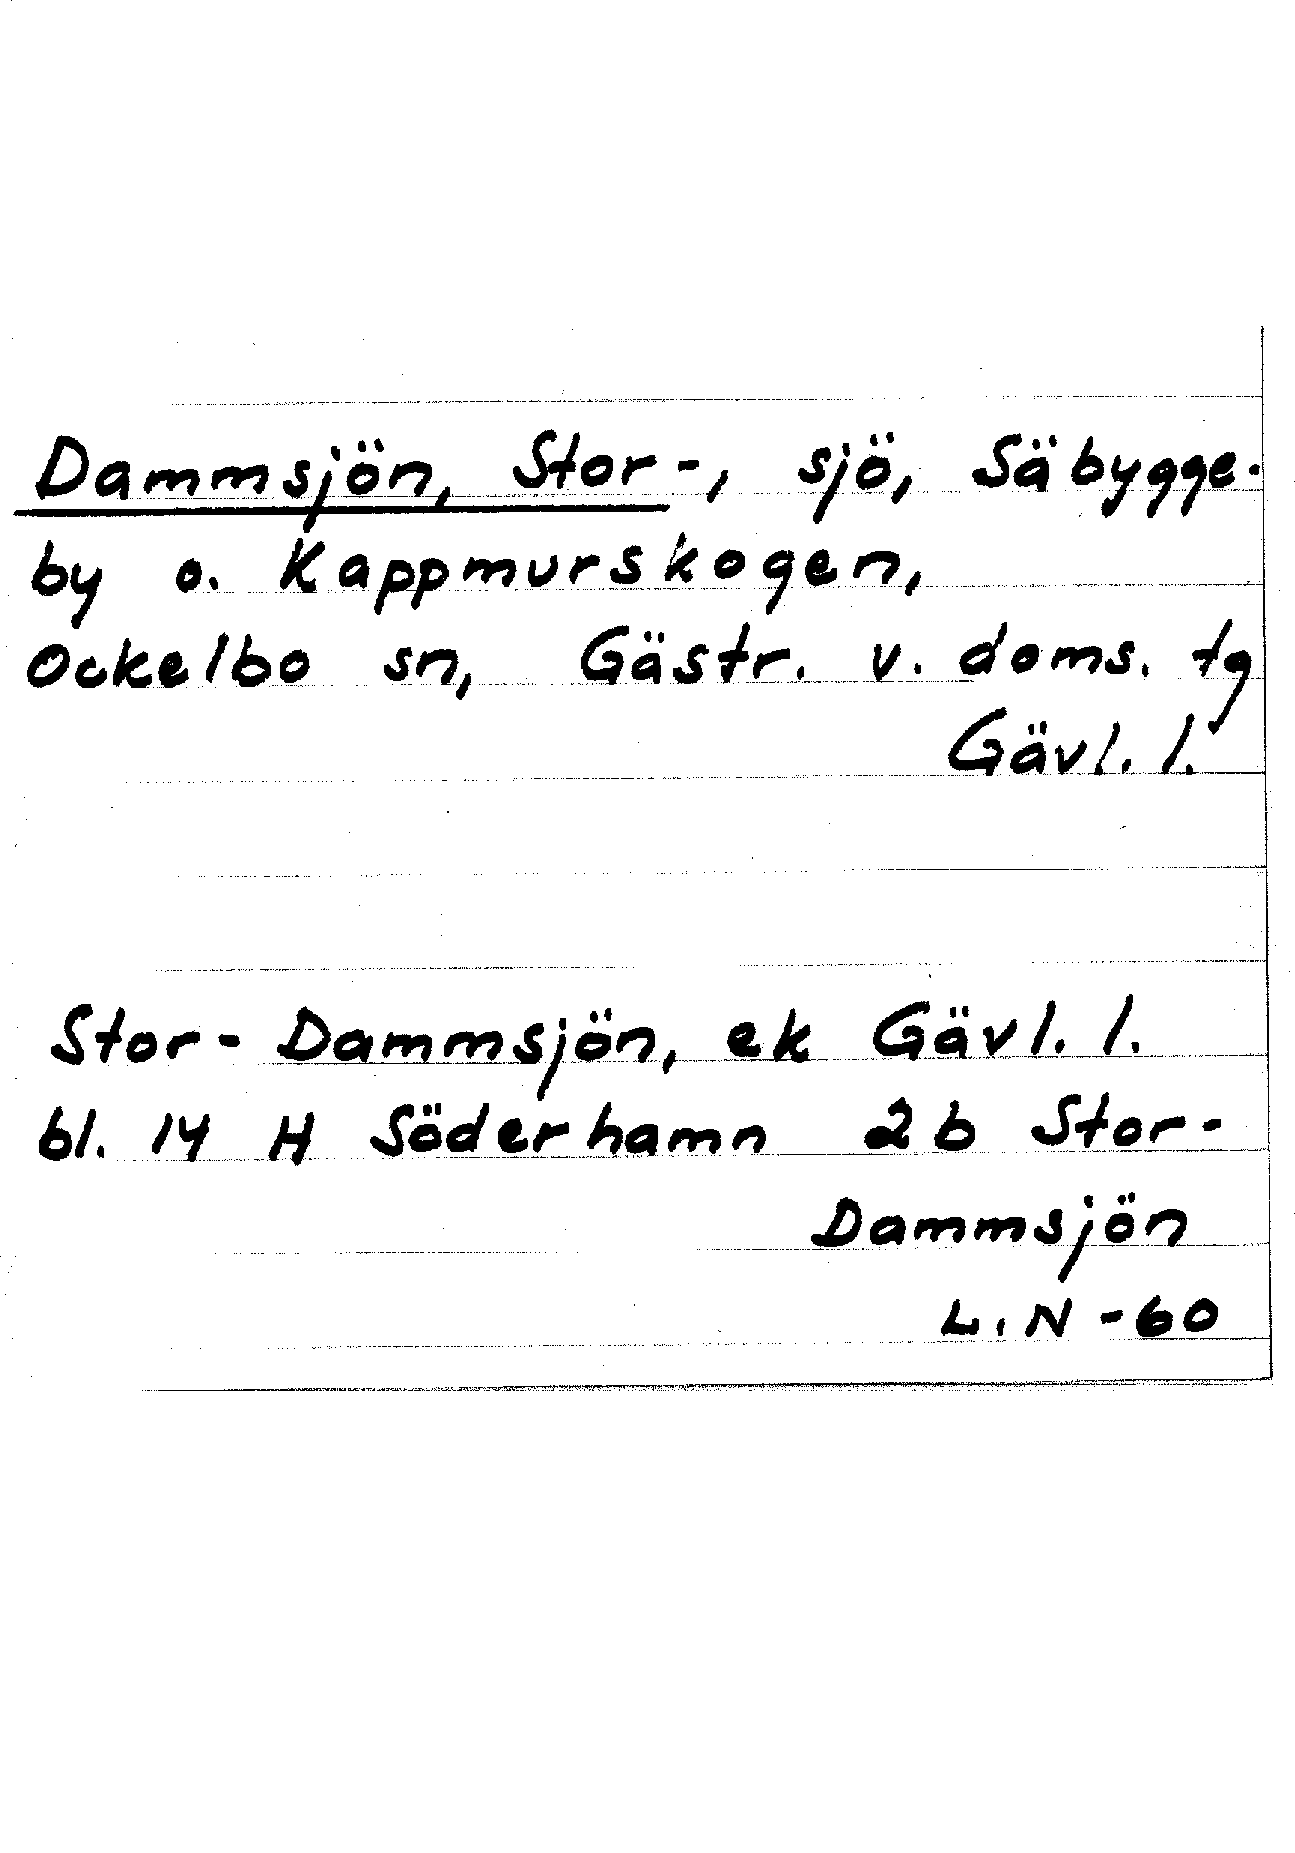 Dammsjön, Stor-, sjö, Säbygge-
by o. Kappmurskogen,
Ockelbo sn, Gästr. v. doms. tg
Gävl. l.
Stor-Dammsjön, ek Gävl. l.
bl. 14 H Söderhamn 2b Stor-
Dammsjön
L.N -60